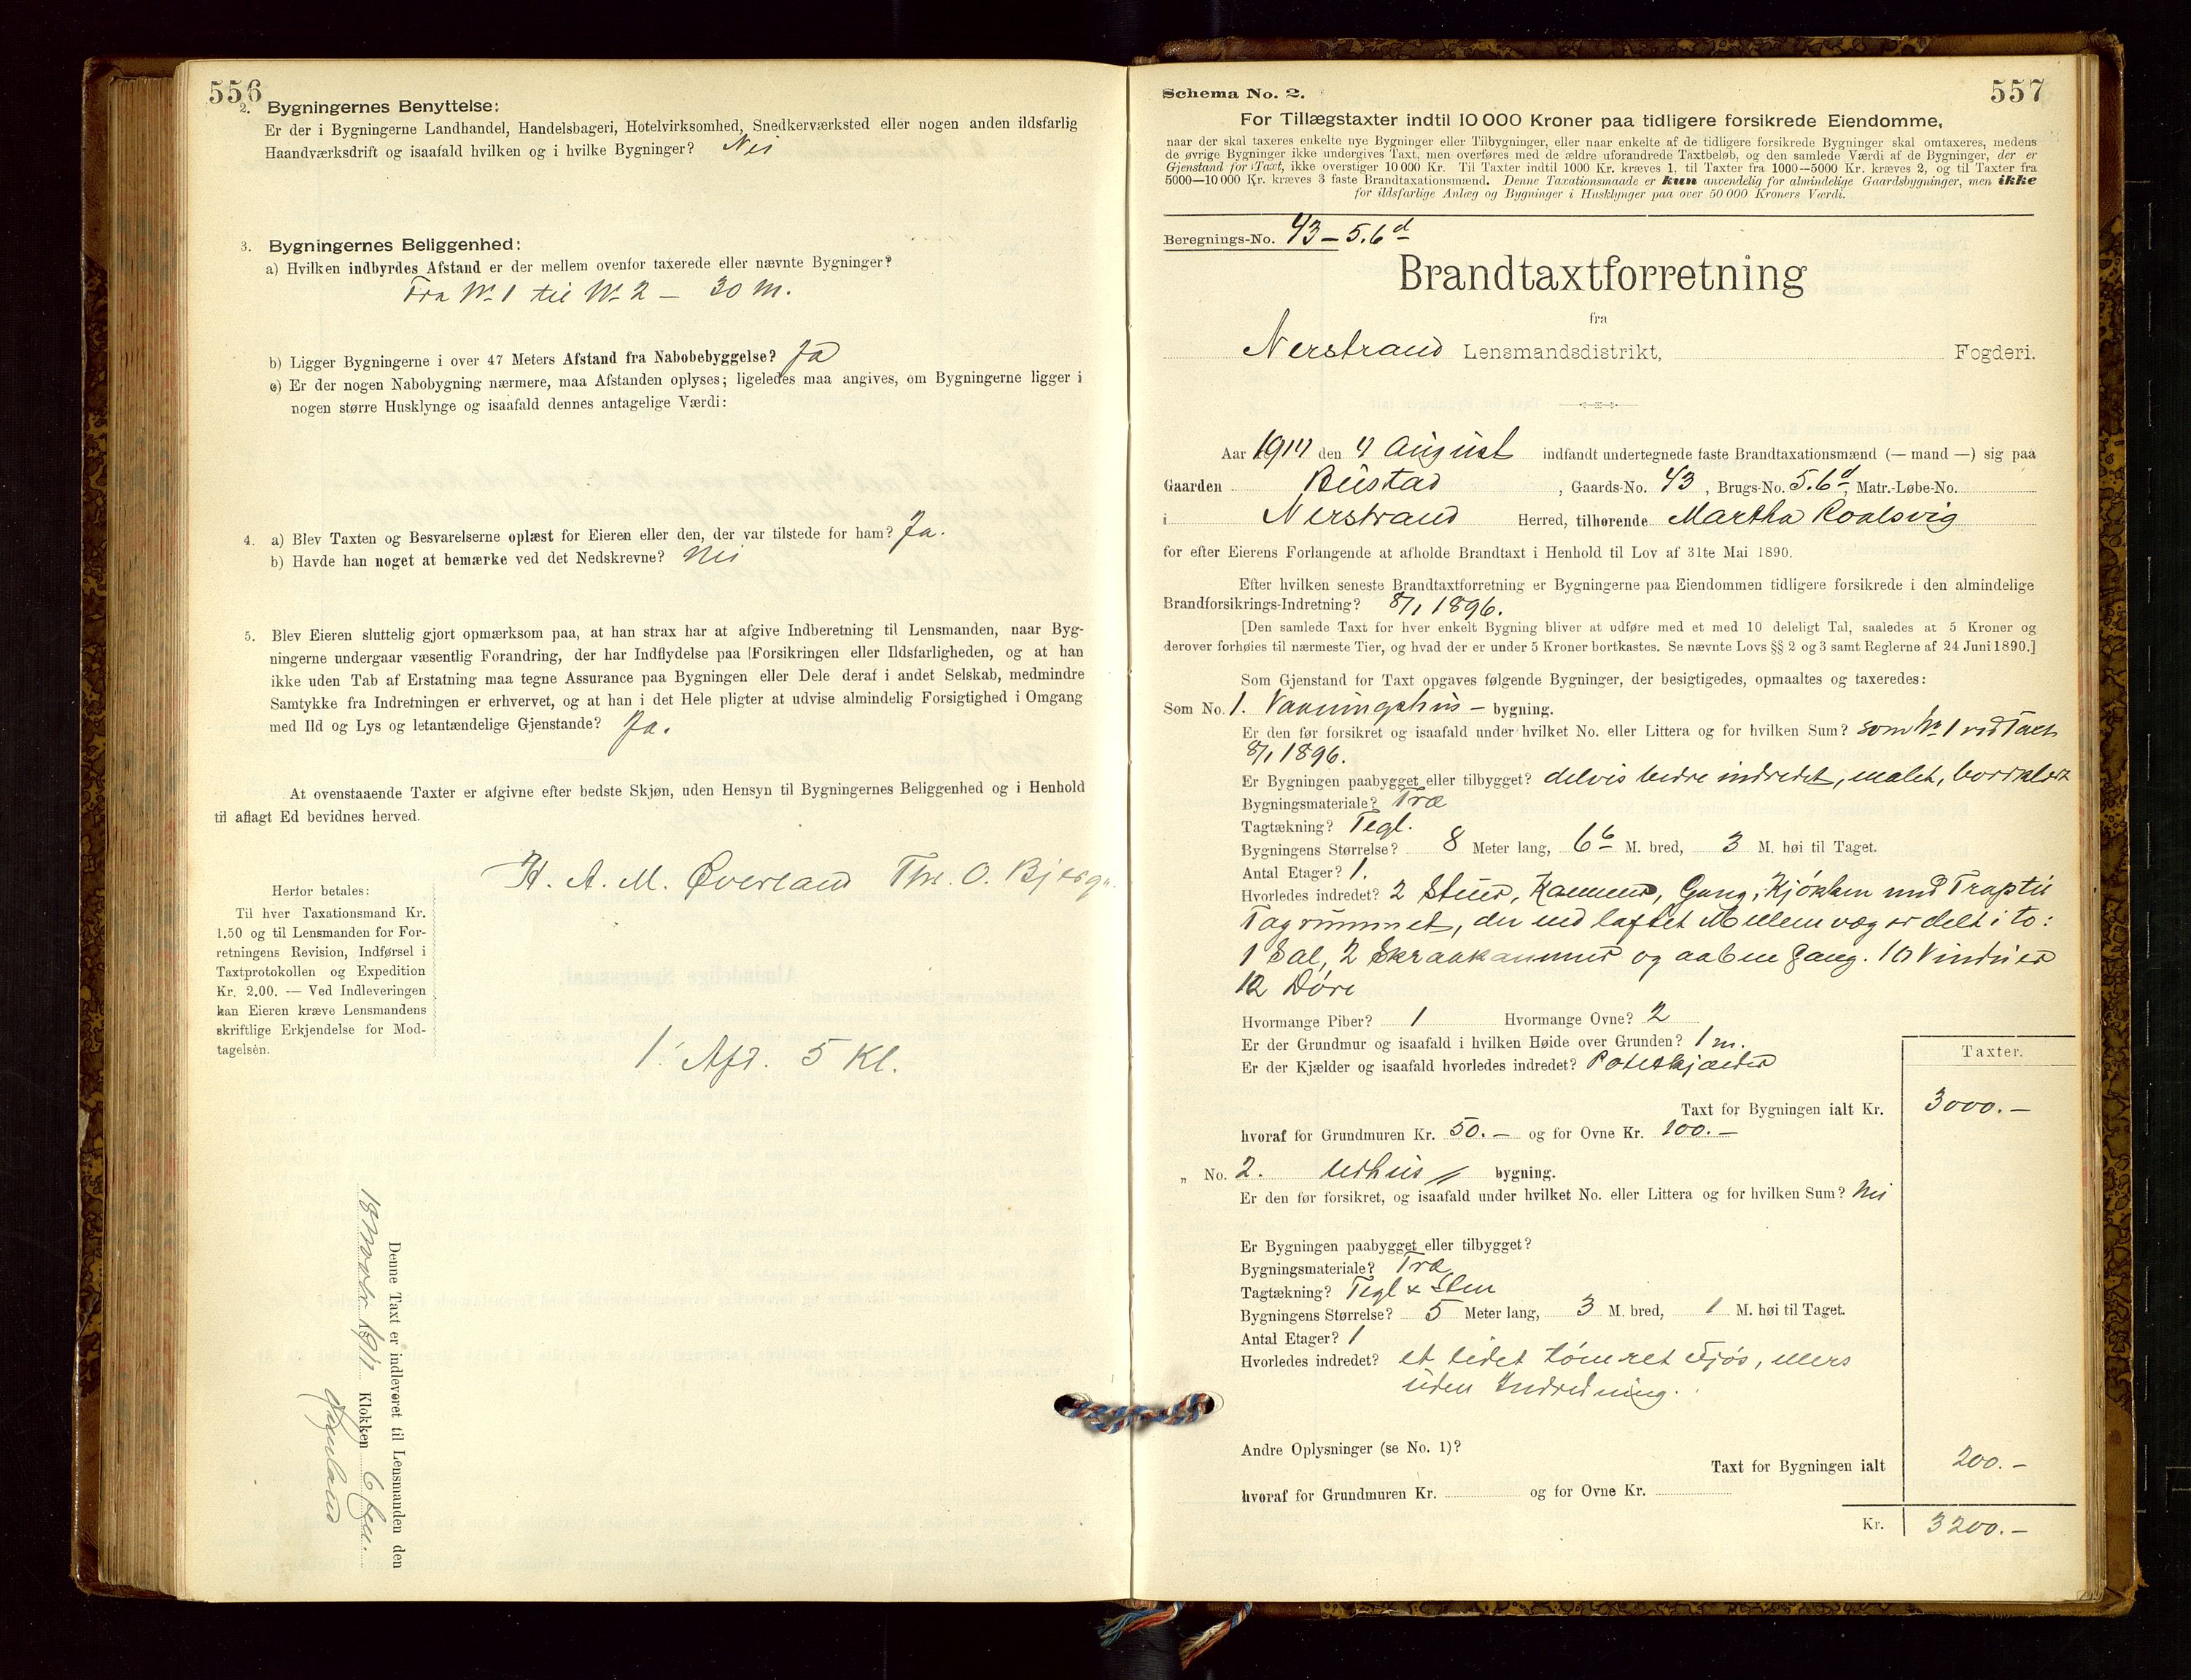 556
2. Bygningernes Benyttelse:
Er der i Bygningerne Landhandel, Handelsbageri, Hotelvirksomhed, Snedkerværksted eller nogen anden ildsfarlig
Haandværksdrift og isaafald hvilken og i hvilke Bygninger? Nei
3. Bygningernes Beliggenhed:
a) Hvilken indbyrdes Afstand er der mellem ovenfor taxerede eller nævnte Bygninger?
Fra No 1 til No 2 – 30 m.
b) Ligger Bygningerne i over 47 Meters Afstand fra Nabobebyggelse? Ja
c) Er der nogen Nabobygning nærmere, maa Afstanden oplyses; ligeledes maa angives, om Bygningerne ligger i
nogen større Husklynge og isaafald dennes antagelige Værdi:
4. a) Blev Taxten og Besvarelserne oplæst for Eieren eller den, der var tilstede for ham? Ja.
b) Havde han noget at bemærke ved det Nedskrevne? Nei
5. Blev Eieren sluttelig gjort opmærksom paa, at han strax har at afgive Indberetning til Lensmanden, naar Byg-
ningerne undergaar væsentlig Forandring, der har Indflydelse paa Forsikringen eller Ildsfarligheden, og at han
ikke uden Tab af Erstatning maa tegne Assurance paa Bygningen eller Dele deraf i andet Selskab, medmindre
Samtykke fra Indretningen er erhvervet, og at han i det Hele pligter at udvise almindelig Forsigtighed i Omgang
med Ild og Lys og letantændelige Gjenstande? Ja.
At ovenstaaende Taxter er afgivne efter bedste Skjøn, uden Hensyn til Bygningernes Beliggenhed og i Henhold
til aflagt Ed bevidnes herved.
H. A. M. Øverland Ths. O. Bjerga.
Herfor betales:
Til hver Taxationsmand Kr.
1.50 og til Lensmanden for For-
retningens Revision, Indførsel i
Taxtprotokollen og Expedition
Kr. 2.00. — Ved Indleveringen
kan Eieren kræve Lensmandens
skriftlige Erkjendelse for Mod-
tagelsen.
1. Afd. 5 Kl.
Denne Taxt er indleveret til Lensmanden den
18 Novbr 1914 Klokken 6 Em.
557
Schema No. 2.
For Tillægstaxter indtil 10 000 Kroner paa tidligere forsikrede Eiendomme,
naar der skal taxeres enkelte nye Bygninger eller Tilbygninger, eller naar enkelte af de tidligere forsikrede Bygninger skal omtaxeres, medens
de øvrige Bygninger ikke undergives Taxt, men overføres med de ældre uforandrede Taxtbeløb, og den samlede Værdi af de Bygninger, der er
Gjenstand for Taxt, ikke overstiger 10 000 Kr. Til Taxter indtil 1000 Kr. kræves 1, til Taxter fra 1000—5000 Kr. kræves 2, og til Taxter fra
5000—10 000 Kr. kræves 3 faste Brandtaxationsmænd. Denne Taxationsmaade er kun anvendelig for almindelige Gaardsbygninger, men ikke
for ildsfarlige Anlæg og Bygninger i Husklynger paa over 50 000 Kroners Værdi.
Beregnings-No. 43 – 5.6 d
Brandtaxtforretning
fra
Nerstrand Lensmandsdistrikt, Fogderi.
Aar 1914 den 4 August indfandt undertegnede faste Brandtaxationsmænd (— mand —) sig paa
Gaarden Bustad, Gaards-No. 43, Brugs-No. 5.6 d, Matr.-Løbe-No.
i Nerstrand Herred, tilhørende Martha Roalsvig
for efter Eierens Forlangende at afholde Brandtaxt i Henhold til Lov af 31te Mai 1890.
Efter hvilken seneste Brandtaxtforretning er Bygningerne paa Eiendommen tidligere forsikrede i den almindelige
Brandforsikrings-Indretning? 8/1 1896.
[Den samlede Taxt for hver enkelt Bygning bliver at udføre med et med 10 deleligt Tal, saaledes at 5 Kroner og
derover forhøies til nærmeste Tier, og hvad der er under 5 Kroner bortkastes. Se nævnte Lovs §§ 2 og 3 samt Reglerne af 24 Juni 1890.]
Som Gjenstand for Taxt opgaves følgende Bygninger, der besigtigedes, opmaaltes og taxeredes:
Som No. 1. Vaaningshus – bygning.
Er den før forsikret og isaafald under hvilket No. eller Littera og for hvilken Sum? som No 1 ved Taxt
8/1 1896.
Er Bygningen paabygget eller tilbygget? delvis bedre indredet, malet, bordklædt
Bygningsmateriale? Træ
Tagtækning? Tegl.
Bygningens Størrelse? 8 Meter lang, 6 6 M. bred, 3 M. høi til Taget.
Antal Etager? 1.
Hvorledes indredet? 2 Stuer, Kammer, Gang, Kjøkken med Trap til
Tagrummet, der ved laftet Mellemvæg er delt i to:
1 Sal, 2 Skraakammer og aaben Gang. 10 Vinduer
12 Døre
Hvormange Piber? 1 Hvormange Ovne? 2
Er der Grundmur og isaafald i hvilken Høide over Grunden? 1 m.
Er der Kjælder og isaafald hvorledes indredet? Potetkjælder
Taxter.
Taxt for Bygningen ialt Kr. 3000.–
hvoraf for Grundmuren Kr. 50.– og for Ovne Kr. 100.–
„ No. 2. Udhus bygning.
Er den før forsikret, og isaafald under hvilket No. eller Littera og for hvilken Sum? Nei
Er Bygningen paabygget eller tilbygget?
Bygningsmateriale? Træ
Tagtækning? Tegl & Sten
Bygningens Størrelse? 5 Meter lang, 3 M. bred, 1 M. høi til Taget.
Antal Etager? 1
Hvorledes indredet? et lidet tømret Fjøs, ellers
uden Indredning.
Andre Oplysninger (se No. 1)?
Taxt for Bygningen ialt 200.–
hvoraf for Grundmuren Kr. og for Ovne Kr.
Kr. 3200.–